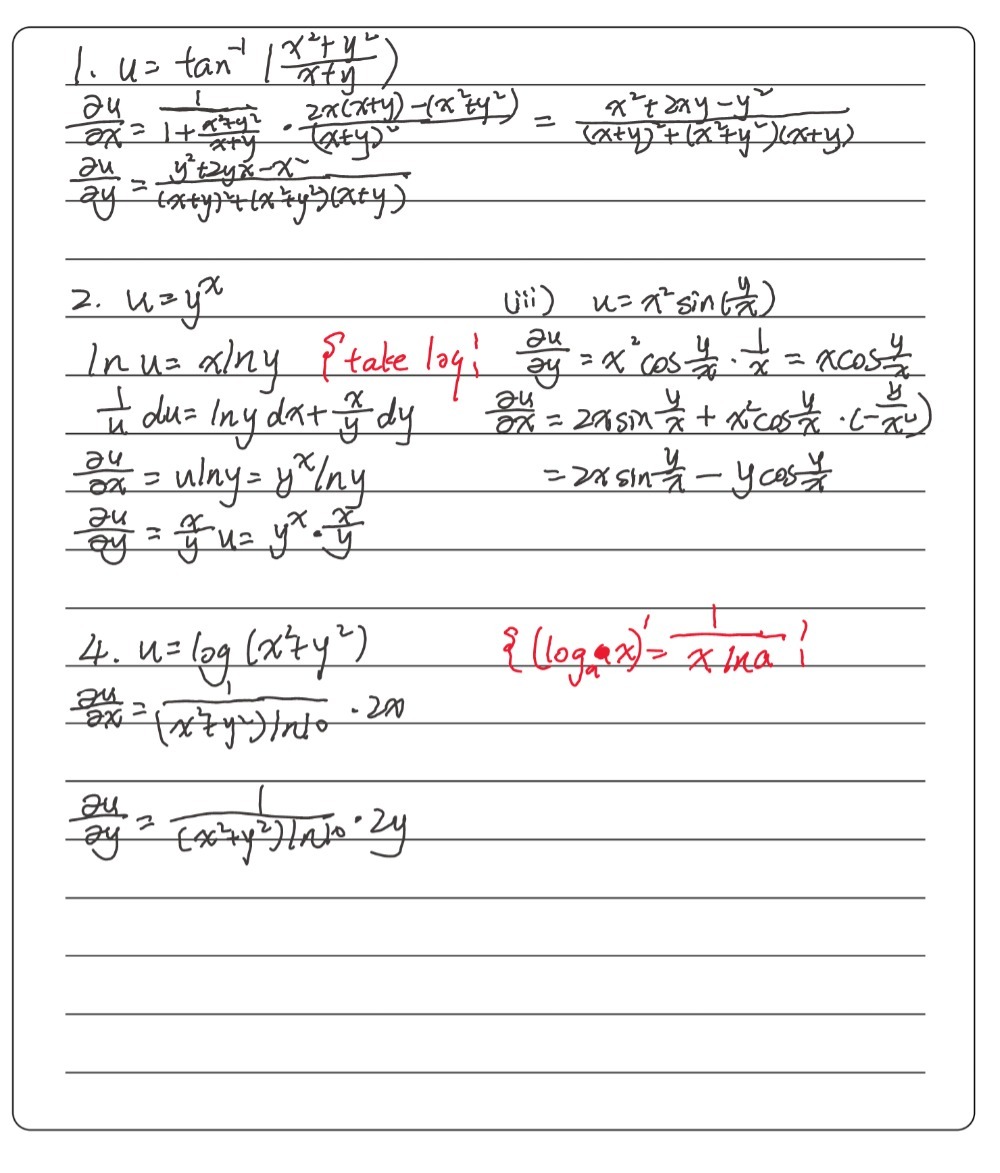 1. u = tan⁻¹ ((x²+y²)/(x+y))
∂u/∂x = 1/(1+(x²+y²)/(x+y)) · (2x(x+y)-(x²+y²))/(x+y)² = (x²+2xy-y²)/((x+y)²+(x²+y²)(x+y))
∂u/∂y = (y²+2yx-x²)/((x+y)²+(x²+y²)(x+y))
2. u = y^x
ln u = x ln y {take log}
1/u du = ln y dx + x/y dy
∂u/∂x = u ln y = y^x ln y
∂u/∂y = x/y u = y^x · x/y
(iii) u = x² sin(y/x)
∂u/∂y = x² cos y/x · 1/x = x cos y/x
∂u/∂x = 2x sin y/x + x² cos y/x · (-y/x²)
= 2x sin y/x - y cos y/x
4. u = log (x²+y²) {(logₐx)' = 1/(x ln a)}
∂u/∂x = 1/((x²+y²) ln10) · 2x
∂u/∂y = 1/((x²+y²) ln10) · 2y